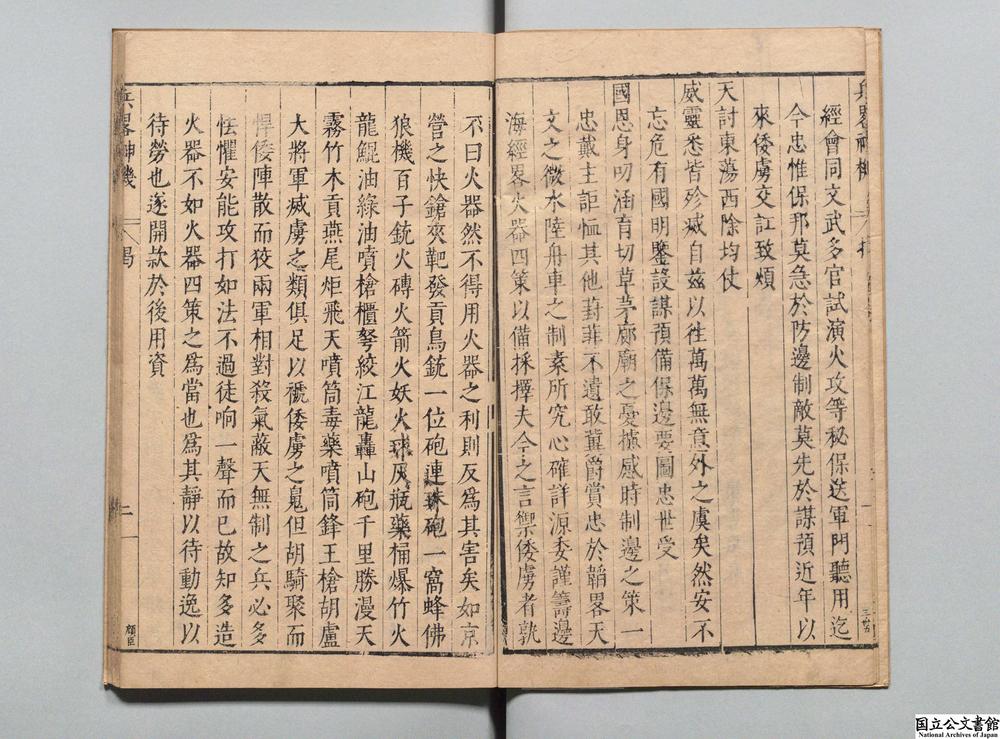 兵畧神機
經會同文武多官試演火攻等秘保送軍門聽用迄
今忠惟保邦莫急於防邊制敵莫先於謀預近年以
來倭虜交訌致煩
天討東蕩西除均仗
威靈悉皆殄滅自茲以徃萬萬無意外之虞矣然安不
忘危有國明鑒設謀預備保邊要圖忠世受
國恩身叨涵育切草茅廊廟之憂撼感時制邊之策一
忠戴主詎恤其他葑菲不遺敢冀爵賞忠於韜畧天
文之微水陸舟車之制素所究心確詳源委謹籌邊
海經畧火器四策以備採擇夫今之言禦倭虜者孰
不曰火器然不得用火器之利則反爲其害矣如京
營之快鎗夾靶發貢鳥銃一位砲連珠砲一窩蜂佛
狼機百子銃火磚火箭火妖火球灰瓶藥桶爆竹火
龍鯤油綠油噴槍櫃弩絞江龍轟山砲千里勝漫天
霧竹木貢燕尾炬飛天噴筒毒藥噴筒鋒王槍胡盧
大將軍滅虜之類俱足以褫倭虜之䰟但胡騎聚而
悍倭陣散而狡兩軍相對殺氣蔽天無制之兵必多
怯懼安能攻打如法不過徒响一聲而已故知多造
火器不如火器四策之爲當也爲其靜以待動逸以
待勞也遂開款於後用資
兵畧神機
曷
二
顔臣
国立公文書館
National Archives of Japan